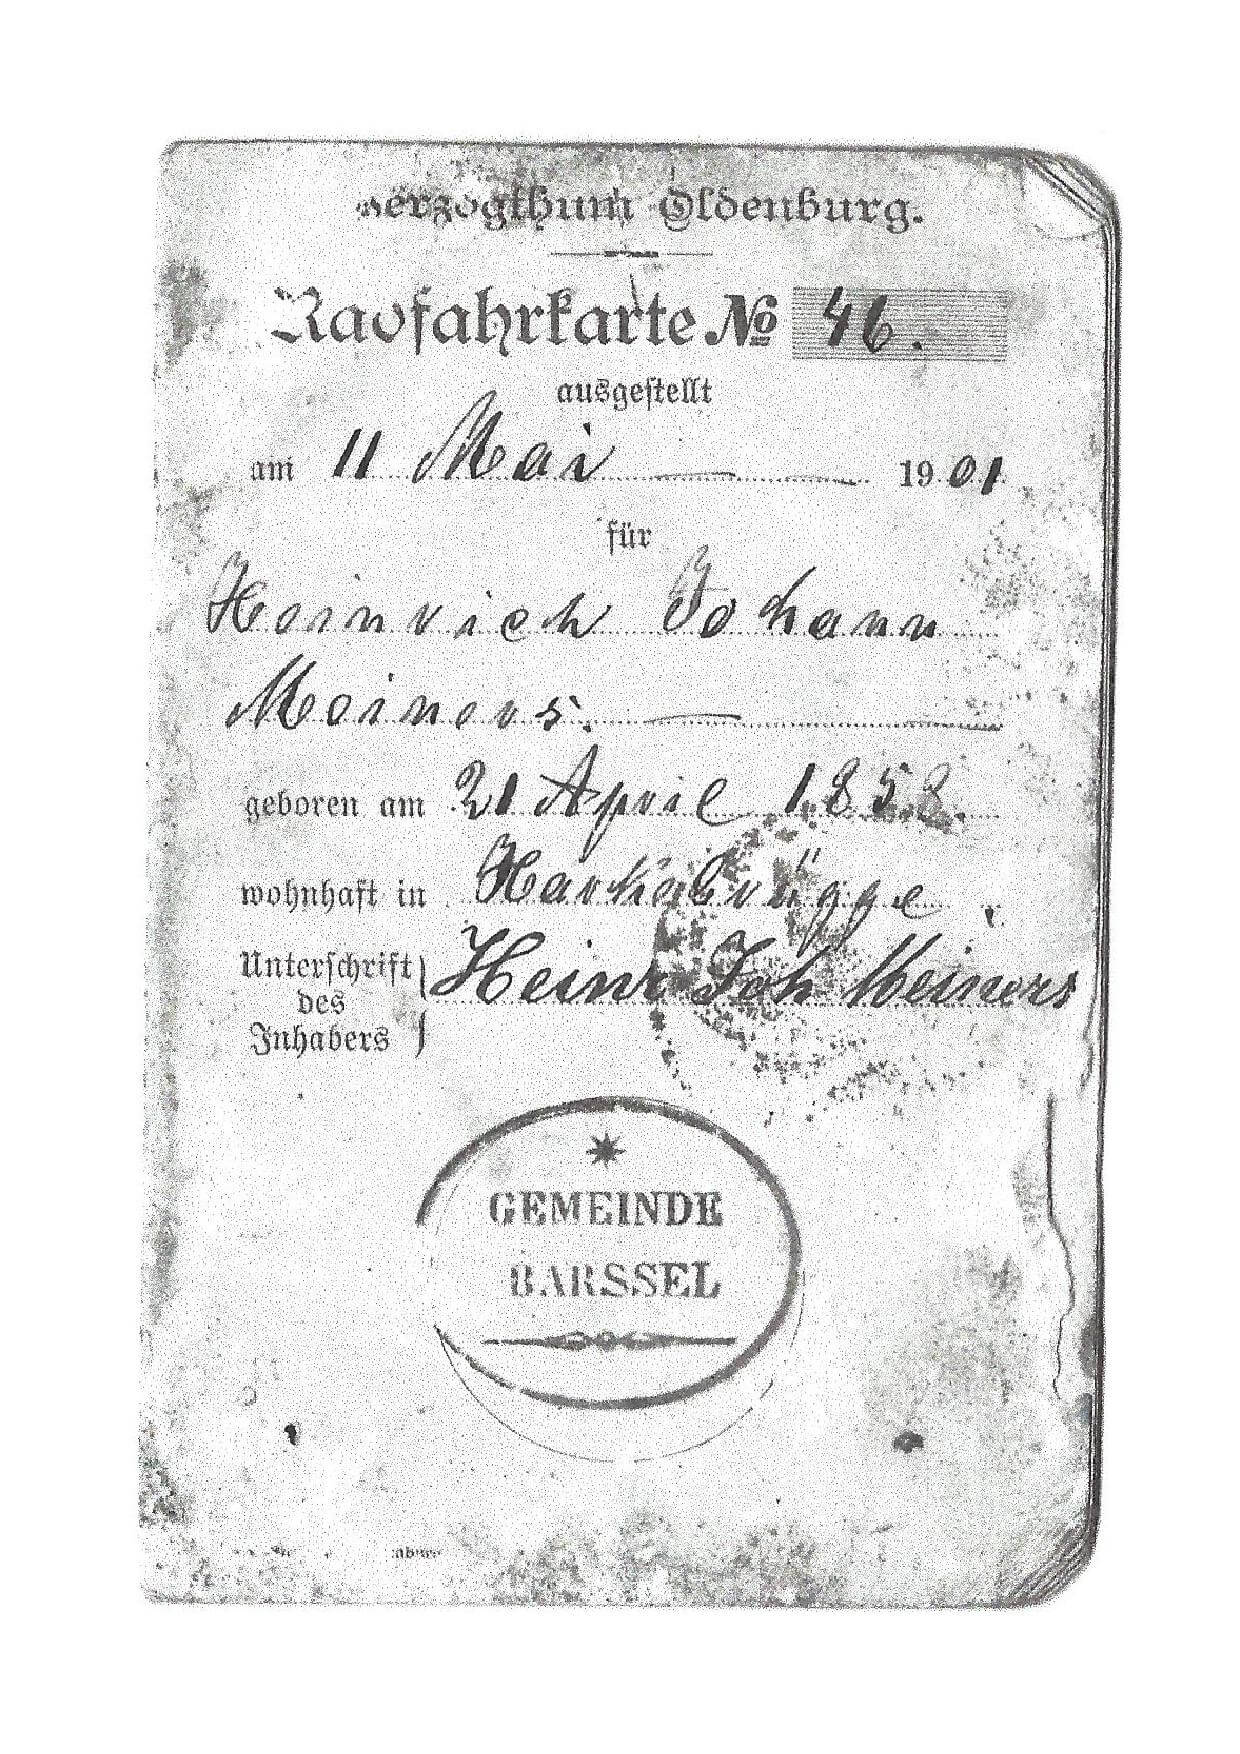 Herzogthum Oldenburg.
Radfahrkarte № 46.
ausgestellt
am 11 Mai 1901
für
Heinrich Johann
Meiners.
geboren am 21 April 1858.
wohnhaft in Harkebrügge
Unterschrift des Inhabers } Heinr Joh Meiners
GEMEINDE
BARSSEL